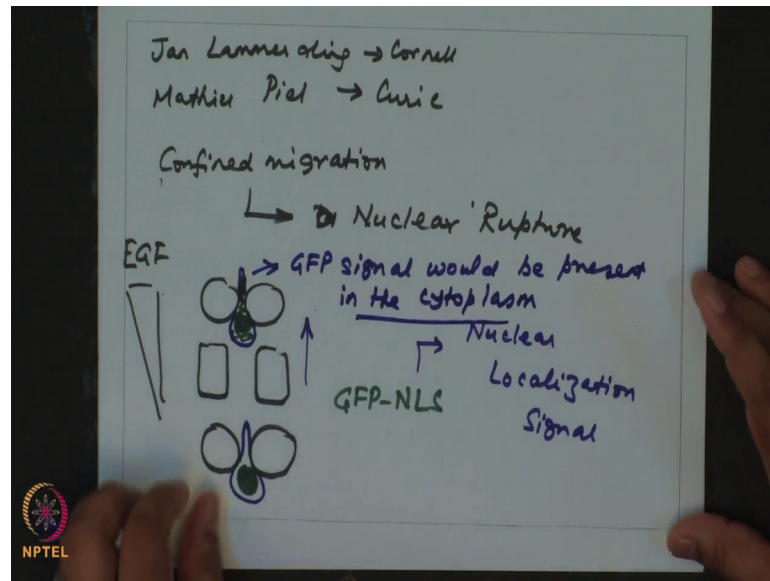 Jan Lammerding → Cornell
Mathieu Piel → Curie
Confined migration
Nuclear Rupture
EGF
→ GFP signal would be present
in the cytoplasm
Nuclear
Localization
Signal
GFP-NLS
NPTEL